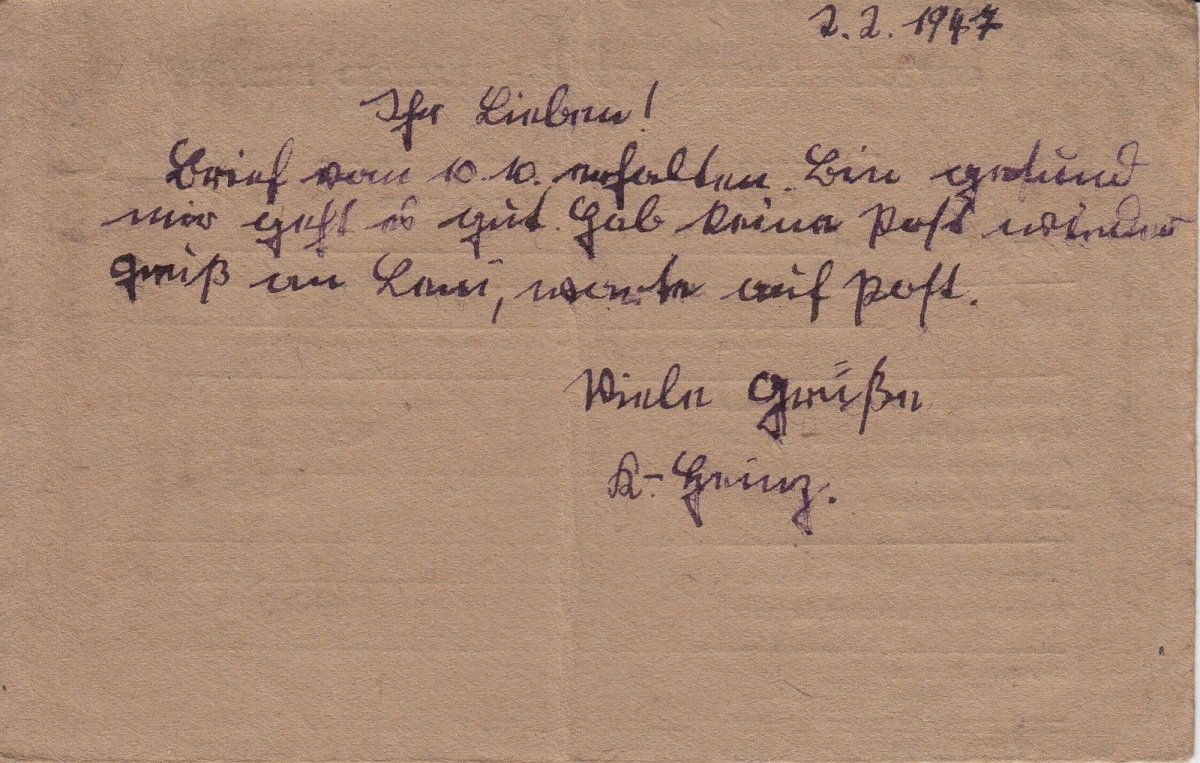 2.2. 1947
Ihr Lieben!
Brief vom 10.10. erhalten. Bin gesund
mir geht es gut. Hab keine Post wieder
Gruß an Leni, warte auf Post.
Viele Grüße
K.-Heinz.